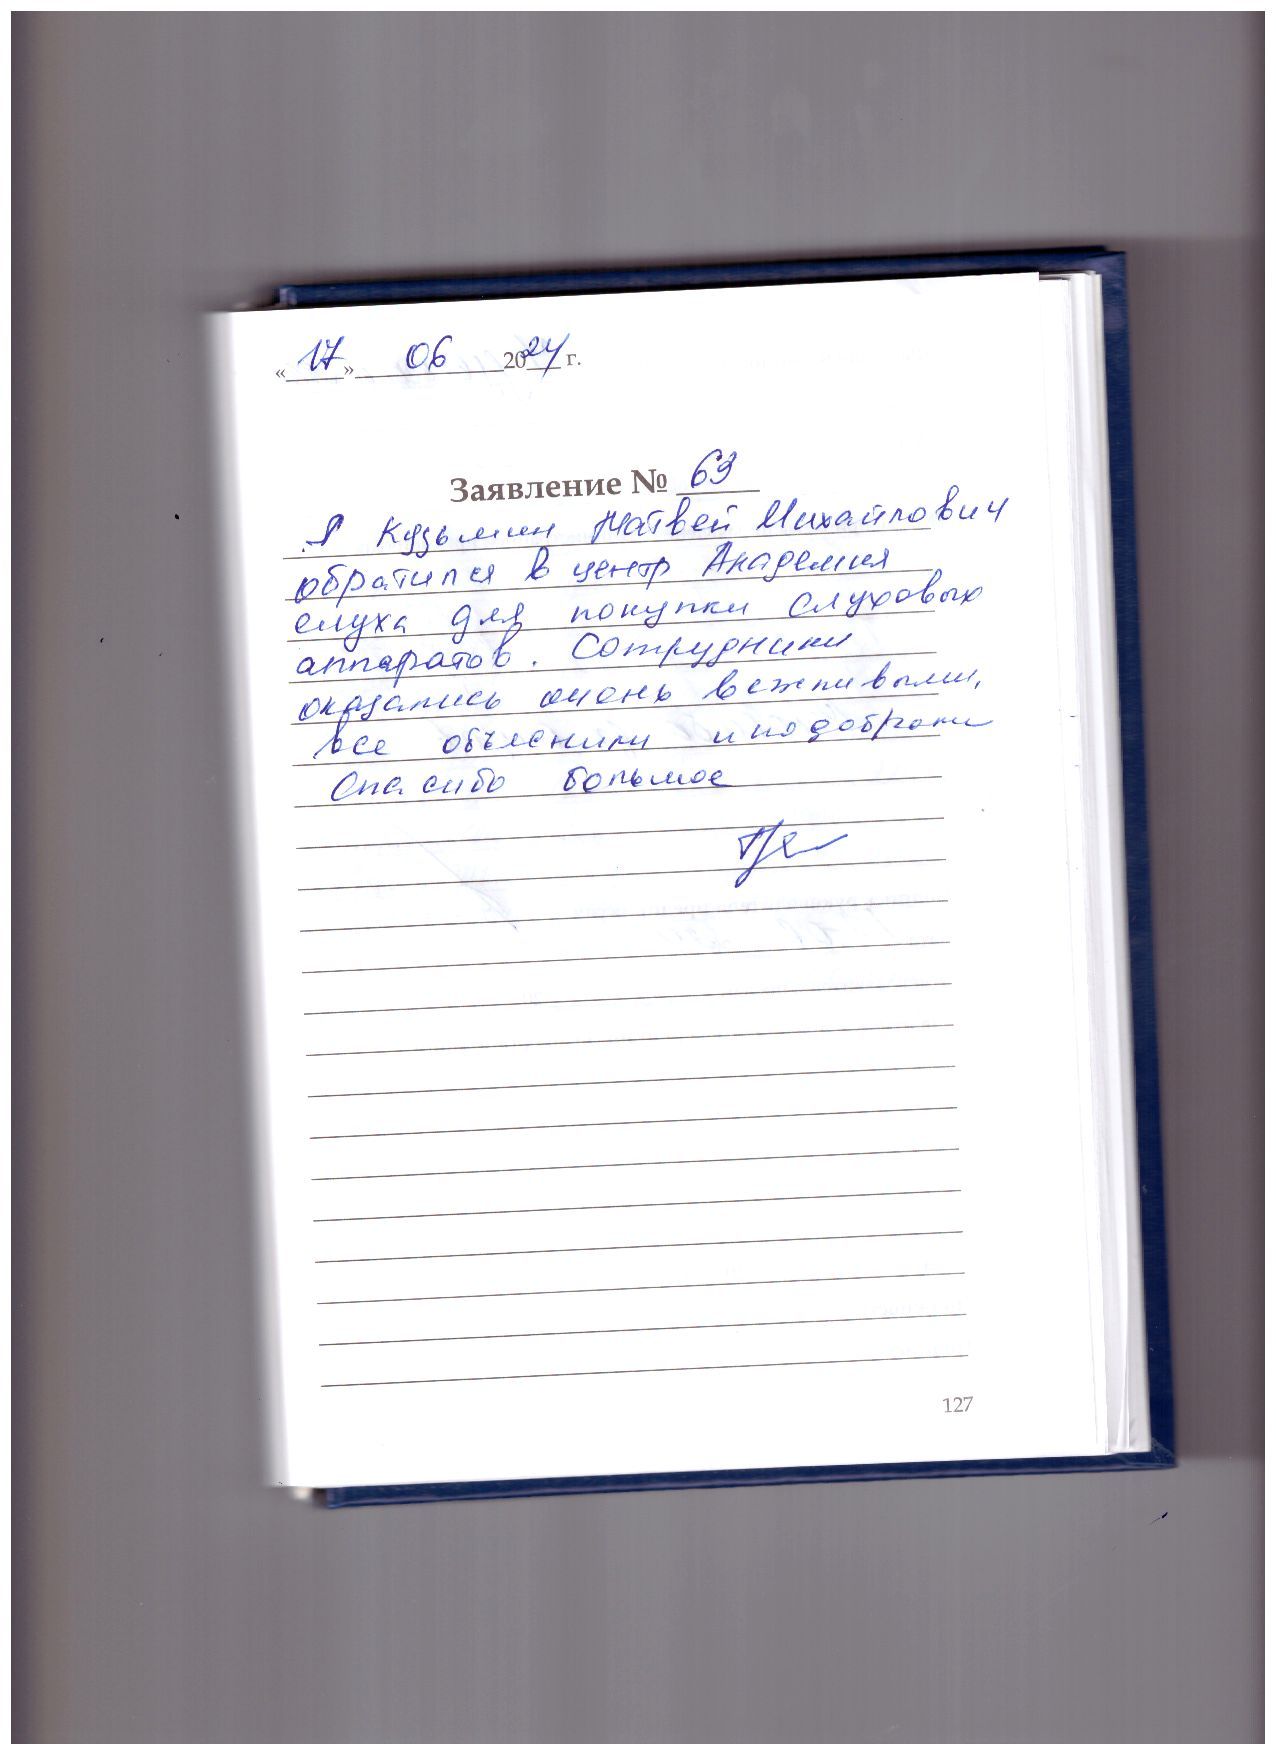 «17» 06 2024 г.
Заявление № 63
Я Кузьмин Матвей Михайлович
обратился в центр Академия
слуха для покупки слуховых
аппаратов. Сотрудники
оказались очень вежливыми,
все объяснили и подобрали
Спасибо большое
127